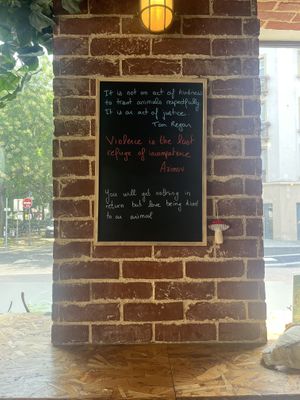 It is not an act of kindness
to treat animals respectfully.
It is an act of justice.
Tom Regan
Violence is the last
refuge of incompetence
Asimov
You will get nothing in
return but love being kind
to an animal